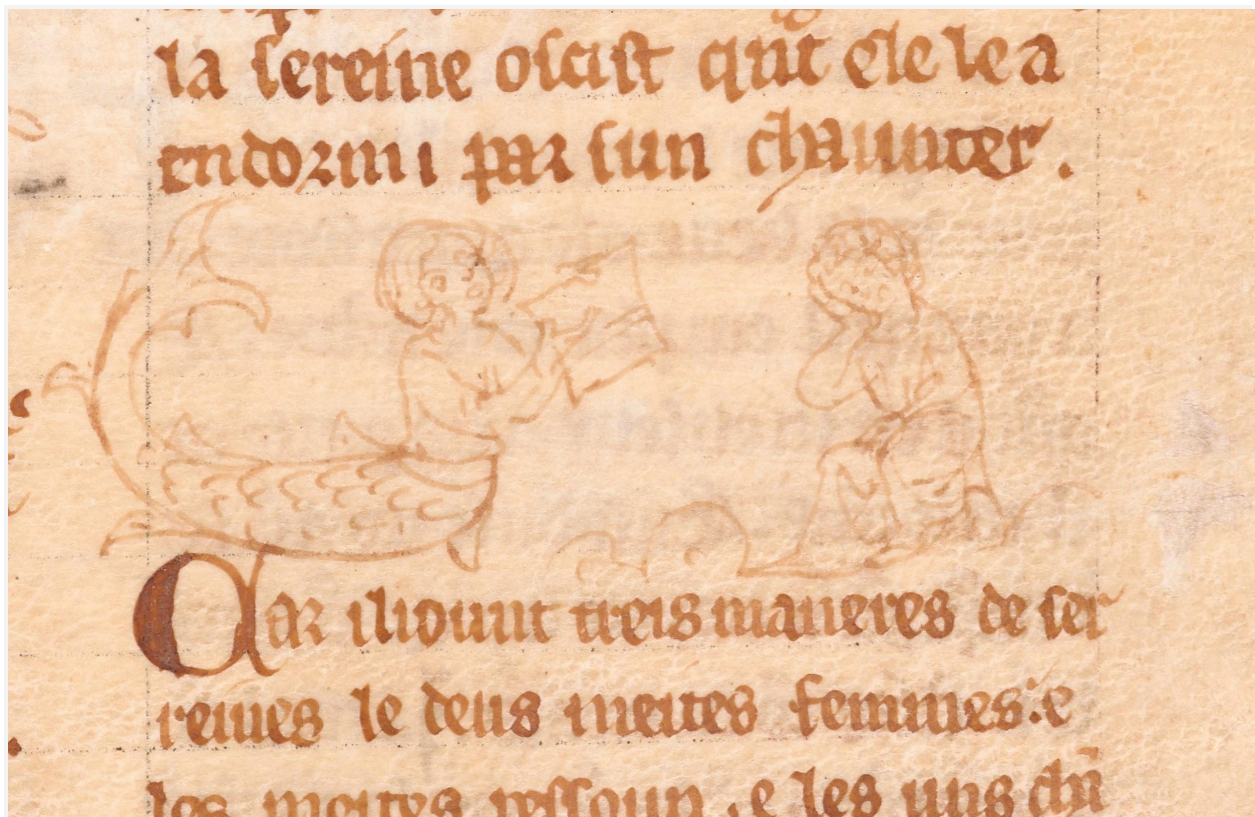 la sereine oscist qnt ele le a
endormi par sun chaunter.
Car il iount treis maneres de ser
reines le deus meites femmes: e
les meites pessoun . e les uns